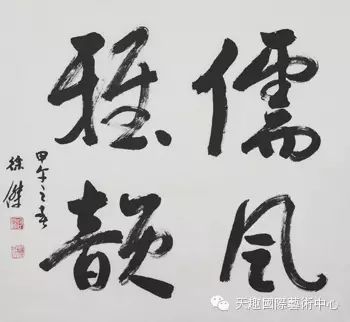 儒风
雅韻
甲午之春
徐傑
天趣國際藝術中心